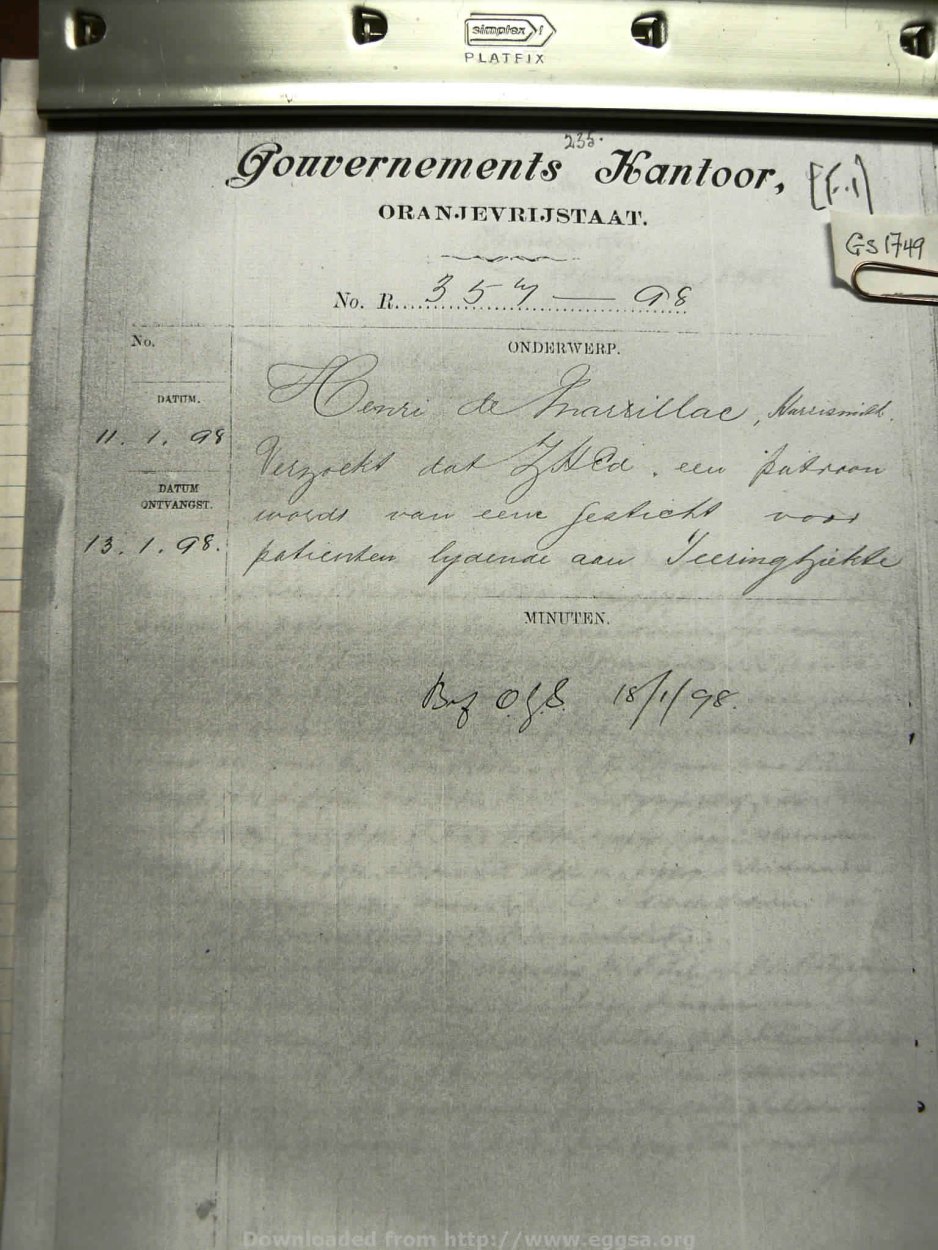 simplex
PLATFIX
235.
Gouvernements Kantoor,
[f.1]
ORANJEVRIJSTAAT.
GS 1749
No. R. 357 — 98
No.
ONDERWERP.
DATUM.
11. 1. 98
DATUM
ONTVANGST.
13. 1. 98.
Henri de Marsillac, Harrismith.
Verzoekt dat ZHEd. een patroon
wordt van een gesticht voor
patienten lydende aan Teeringziekte
MINUTEN.
18/1/98.
Downloaded from http://www.eggsa.org